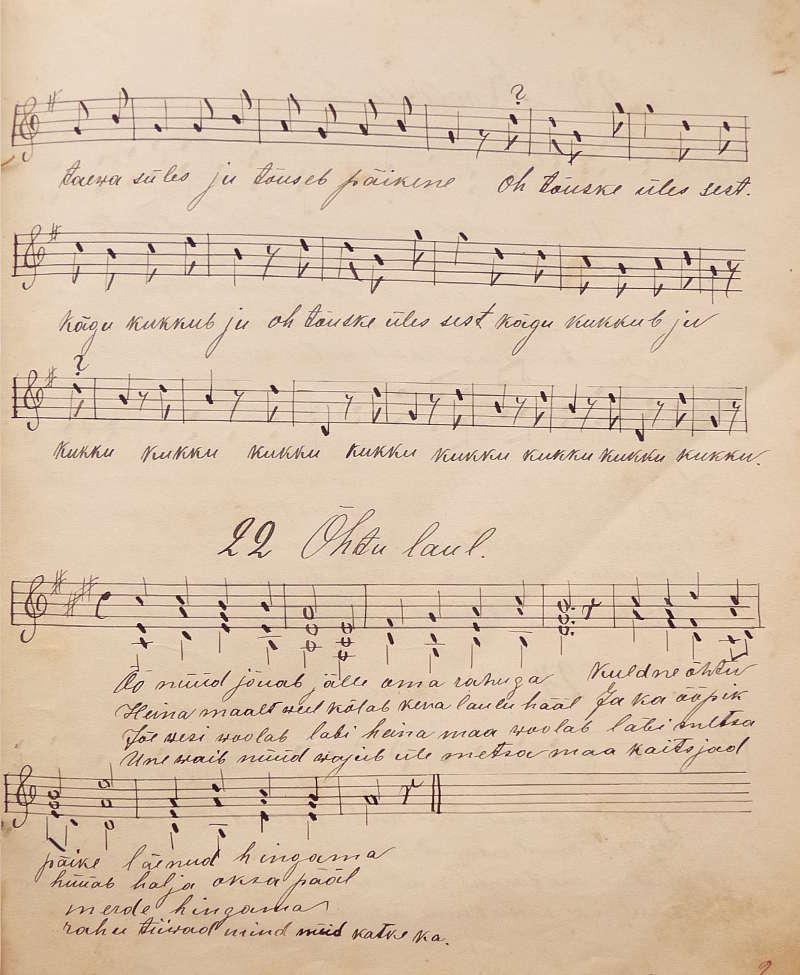 ?
taewa süles ju tõuseb päikene oh tõuske üles sest.
kägu kukkub ju oh tõuske üles sest kägu kukkub ju
?
kukku kukku kukku kukku kukku kukku kukku kukku.
22 Õhtu laul.
Öö nüüd jõuab jälle oma rahuga Kuldne õhtu
Heina maalt weel kõlab kena laulu hääl Ja ka ööpik
Jõe wesi woolab labi heina maa woolab labi metsa
Une waib nüüd wajub üle metsa maa kaitsjad
päike läenud hingama
hüüab halja oksa pääl
merde hingama
rahu tiiwad mind nüüd katke ka.